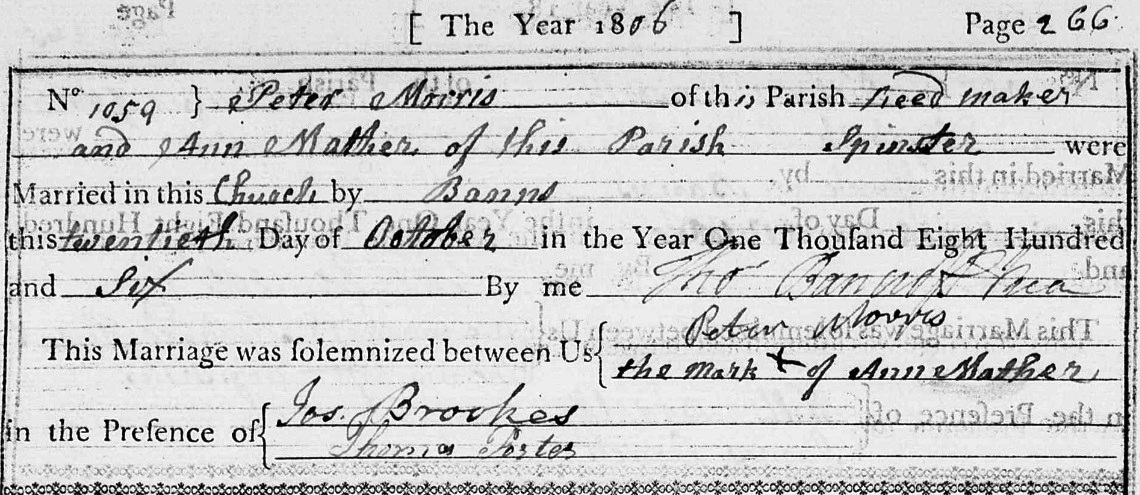 [ The Year 1806 ] Page 266
Nº 1059 } Peter Morris of this Parish Reed maker
and Ann Mather of this Parish Spinster were
Married in this Church by Banns
this twentieth Day of October in the Year One Thouſand Eight Hundred
and Six By me Thoˢ Bancroft
This Marriage was ſolemnized between Us { Peter Morris
the mark X of Ann Mather
in the Preſence of { Jos. Brookes
Thomas Porter